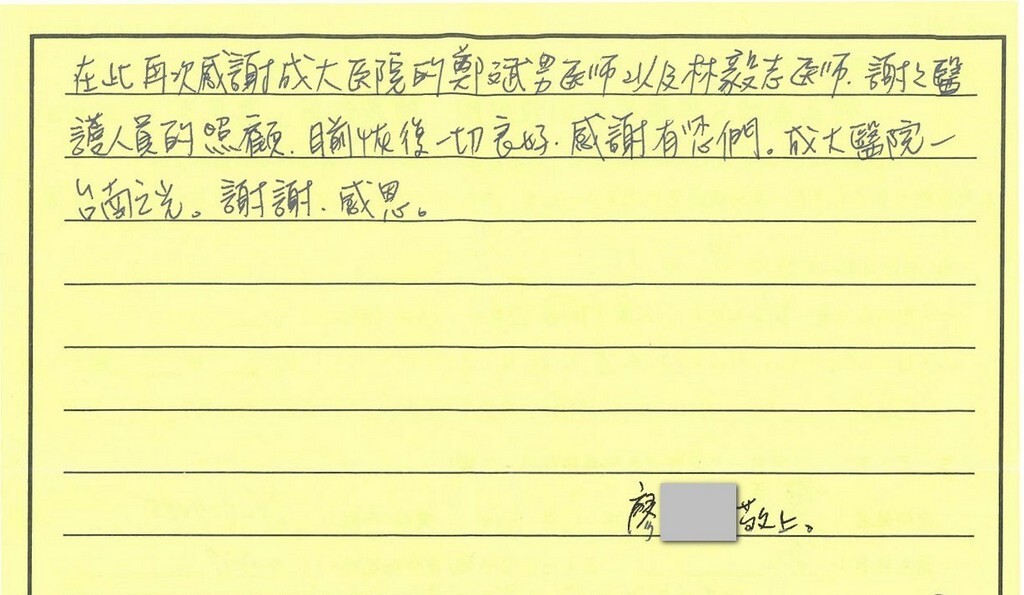 在此再次感謝成大医院的鄭斌男医师以及林毅志医师、謝々醫
護人員的照顧、目前恢復一切良好、感謝有您們。成大醫院一
台南之光。謝謝、感恩。
廖 敬上。